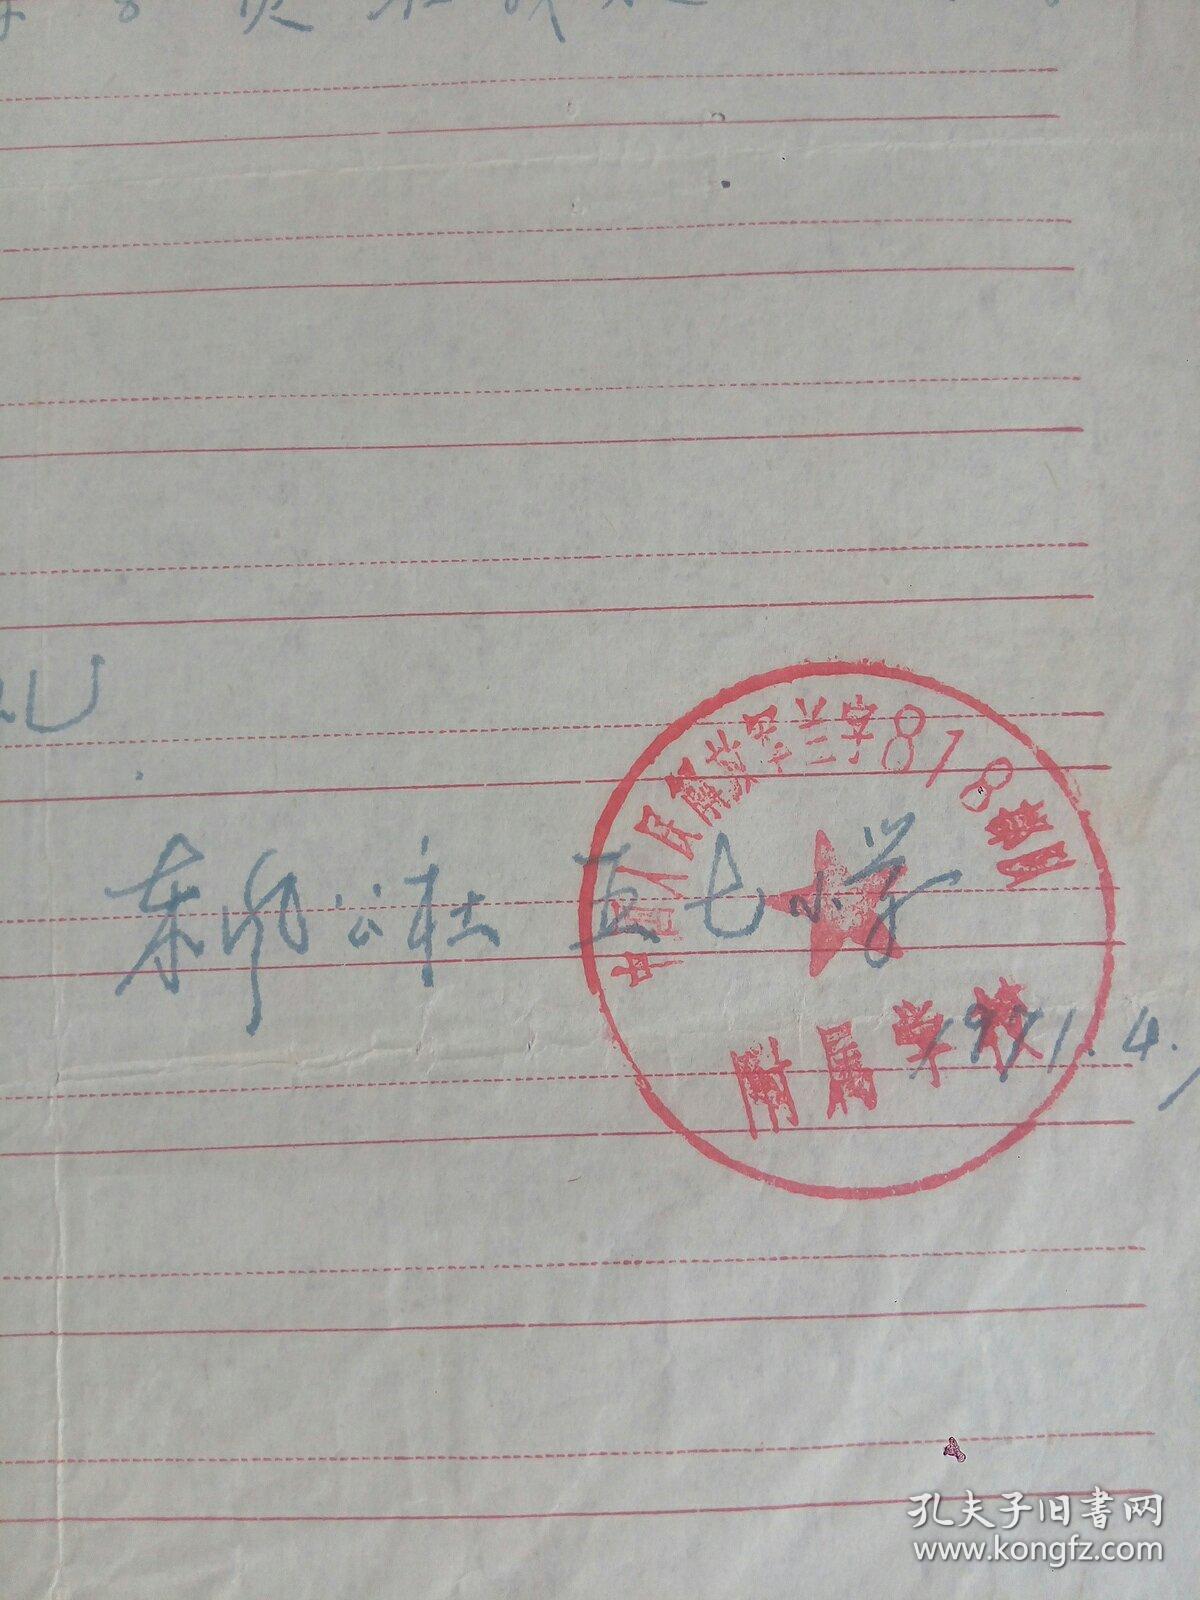 东风公社五七小学
1971.4.
中国人民解放军兰字818部队
附属学校
孔夫子旧书网
www.kongfz.com